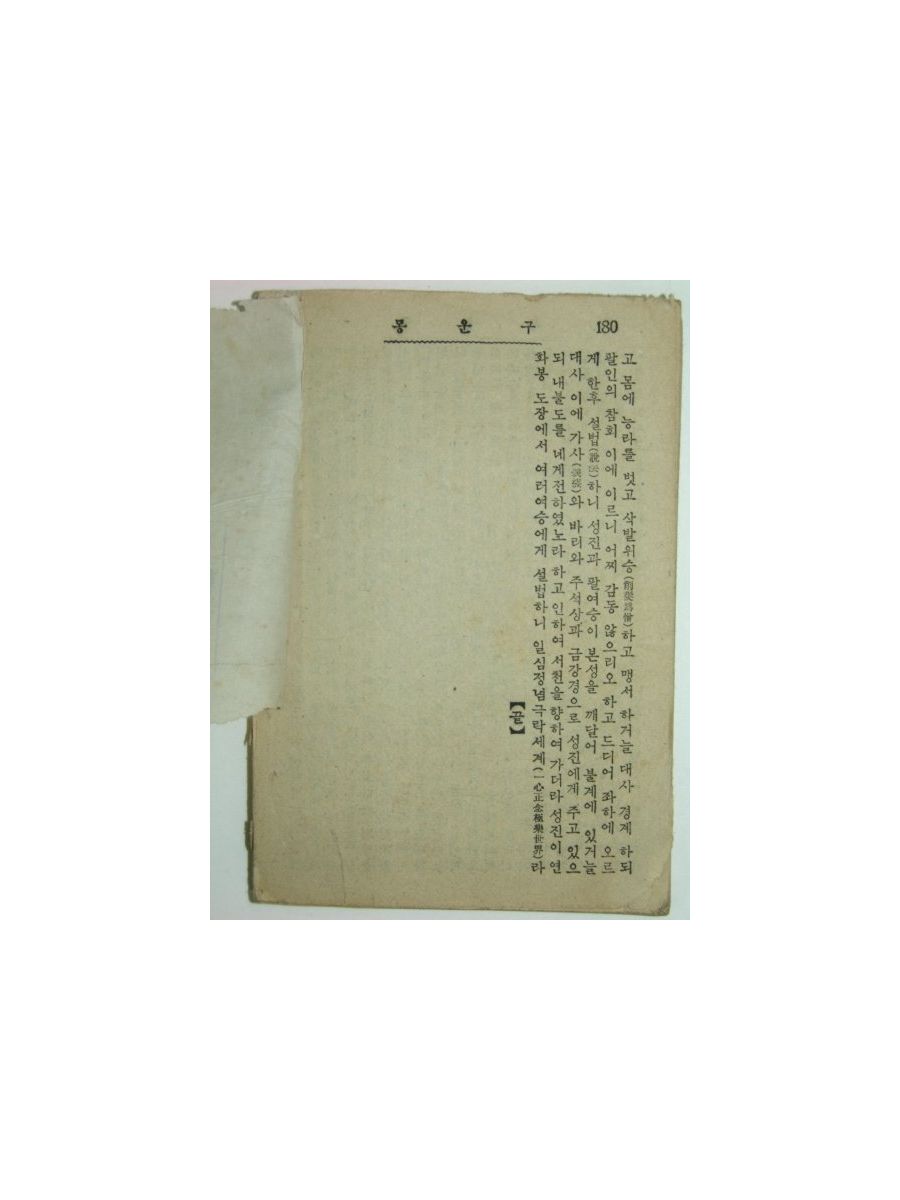 180 구운몽
고 몸에 능라를 벗고 삭발위승(削髮爲僧)하고 맹서 하거늘 대사 경계 하되
팔인의 참회 이에 이르니 어찌 감동 않으리오 하고 드디어 좌하에 오르
게 한후 설법(說法)하니 성진과 팔여승이 본성을 깨달어 불계에 있거늘
대사 이에 가사(袈裟)와 바리와 주석상과 금강경으로 성진에게 주고 있으
되 내불도를 네게전하였노라 하고 인하여 서천을 향하여 가더라 성진이 연
화봉 도장에서 여러여승에게 설법하니 일심정념극락세계(一心正念極樂世界)라
【끝】